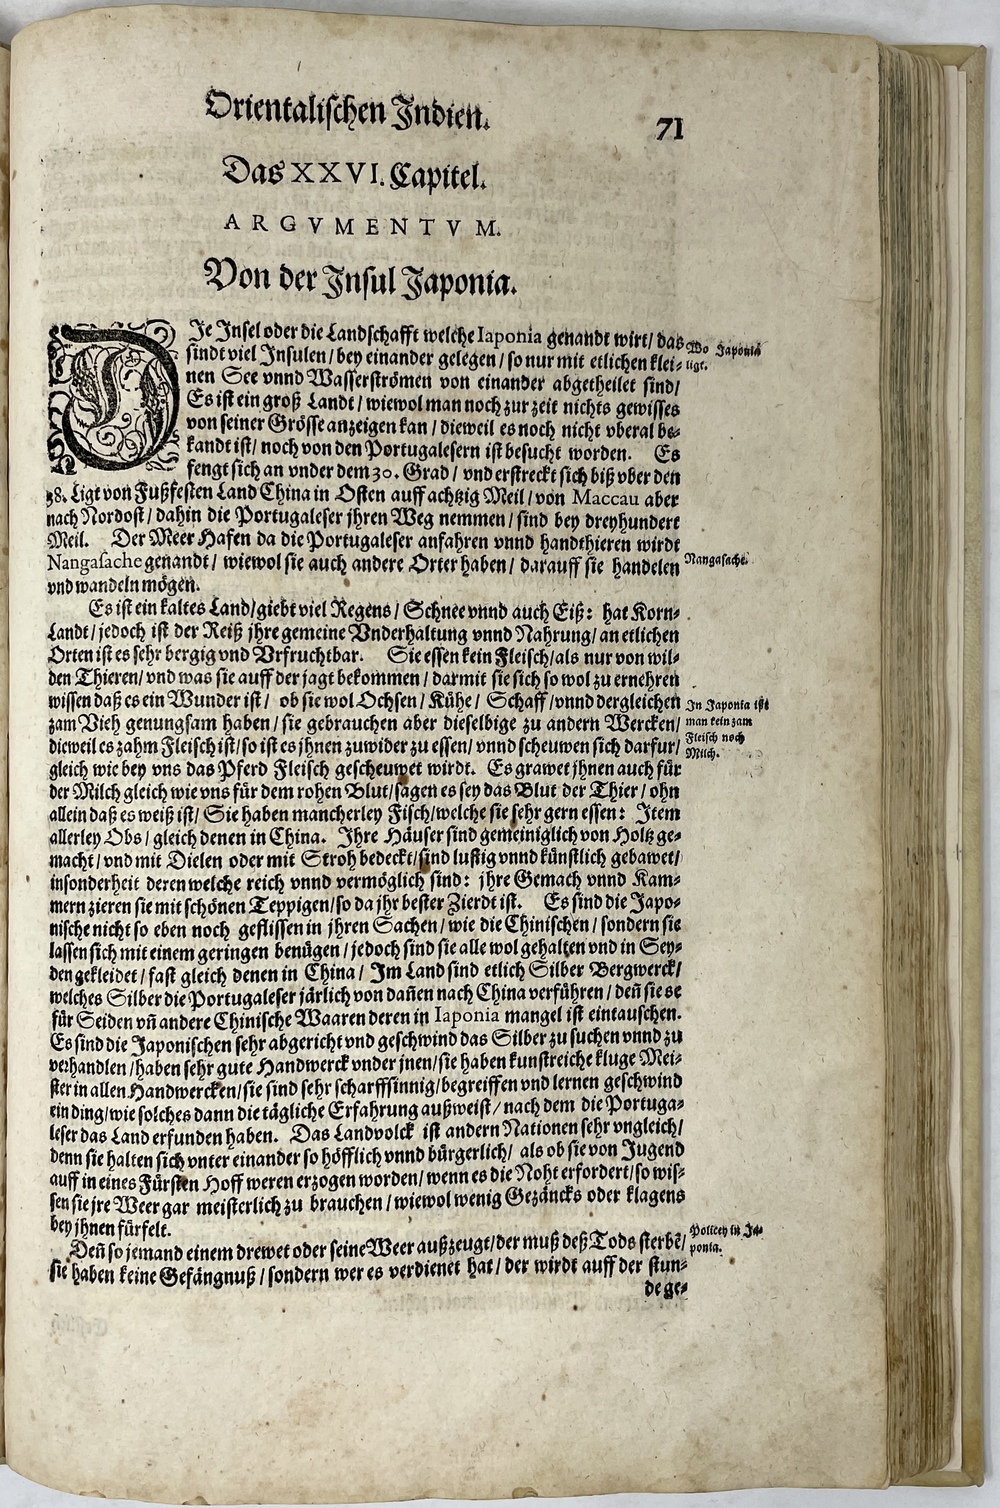 Orientalischen Indien.
71
Das XXVI. Capitel.
ARGVMENTVM.
Von der Insul Japonia.
DJe Insel oder die Landschafft welche Iaponia genandt wirt / das
sindt viel Insulen / bey einander gelegen / so nur mit etlichen klei-
nen See vnnd Wasserströmen von einander abgetheilet sind /
Es ist ein groß Landt / wiewol man noch zur zeit nichts gewisses
von seiner Grösse anzeigen kan / dieweil es noch nicht vberal be-
kandt ist / noch von den Portugalesern ist besucht worden. Es
fengt sich an vnder dem 30. Grad / vnd erstreckt sich biß vber den
38. Ligt von Fußfesten Land China in Osten auff achtzig Meil / von Maccau aber
nach Nordost / dahin die Portugaleser jhren Weg nemmen / sind bey dreyhundert
Meil. Der Meer Hafen da die Portugaleser anfahren vnnd handthieren wirdt
Nangasache genandt / wiewol sie auch andere Orter haben / darauff sie handelen
vnd wandeln mögen.
Es ist ein kaltes Land / giebt viel Regens / Schnee vnnd auch Eiß: hat Korn-
Landt / jedoch ist der Reiß jhre gemeine Vnderhaltung vnnd Nahrung / an etlichen
Orten ist es sehr bergig vnd Vrfruchtbar. Sie essen kein Fleisch / als nur von wil-
den Thieren / vnd was sie auff der jagt bekommen / darmit sie sich so wol zu ernehren
wissen daß es ein Wunder ist / ob sie wol Ochsen / Kühe / Schaff / vnnd dergleichen
zam Vieh genungsam haben / sie gebrauchen aber dieselbige zu andern Wercken /
dieweil es zahm Fleisch ist / so ist es jhnen zuwider zu essen / vnnd scheuwen sich darfur /
gleich wie bey vns das Pferd Fleisch gescheuwet wirdt. Es grawet jhnen auch für
der Milch gleich wie vns für dem rohen Blut / sagen es sey das Blut der Thier / ohn
allein daß es weiß ist / Sie haben mancherley Fisch / welche sie sehr gern essen: Item
allerley Obs / gleich denen in China. Ihre Häuser sind gemeiniglich von Holtz ge-
macht / vnd mit Dielen oder mit Stroh bedeckt / sind lustig vnnd künstlich gebawet /
insonderheit deren welche reich vnnd vermöglich sind: jhre Gemach vnnd Kam-
mern zieren sie mit schönen Teppigen / so da jhr bester Zierdt ist. Es sind die Japo-
nische nicht so eben noch geflissen in jhren Sachen / wie die Chinischen / sondern sie
lassen sich mit einem geringen benügen / jedoch sind sie alle wol gehalten vnd in Sey-
den gekleidet / fast gleich denen in China / Im Land sind etlich Silber Bergwerck /
welches Silber die Portugaleser järlich von dañen nach China verführen / deñ sie se
für Seiden vñ andere Chinische Waaren deren in Iaponia mangel ist eintauschen.
Es sind die Japonischen sehr abgericht vnd geschwind das Silber zu suchen vnnd zu
verhandlen / haben sehr gute Handwerck vnder jnen / sie haben kunstreiche kluge Mei-
ster in allen Handwercken / sie sind sehr scharffsinnig / begreiffen vnd lernen geschwind
ein ding / wie solches dann die tägliche Erfahrung außweist / nach dem die Portuga-
leser das Land erfunden haben. Das Landvolck ist andern Nationen sehr vngleich /
denn sie halten sich vnter einander so höfflich vnnd bürgerlich / als ob sie von Jugend
auff in eines Fürsten Hoff weren erzogen worden / wenn es die Noht erfordert / so wis-
sen sie jre Weer gar meisterlich zu brauchen / wiewol wenig Gezäncks oder klagens
bey jhnen fürfelt.
Deñ so jemand einem drewet oder seine Weer außzeugt / der muß deß Tods sterbē /
sie haben keine Gefängnuß / sondern wer es verdienet hat / der wirdt auff der stun-
de ge-
Wo Japonia
ligt.
Nangasache.
In Japonia ißt
man kein zam
Fleisch noch
Milch.
Policey in Ja-
ponia.